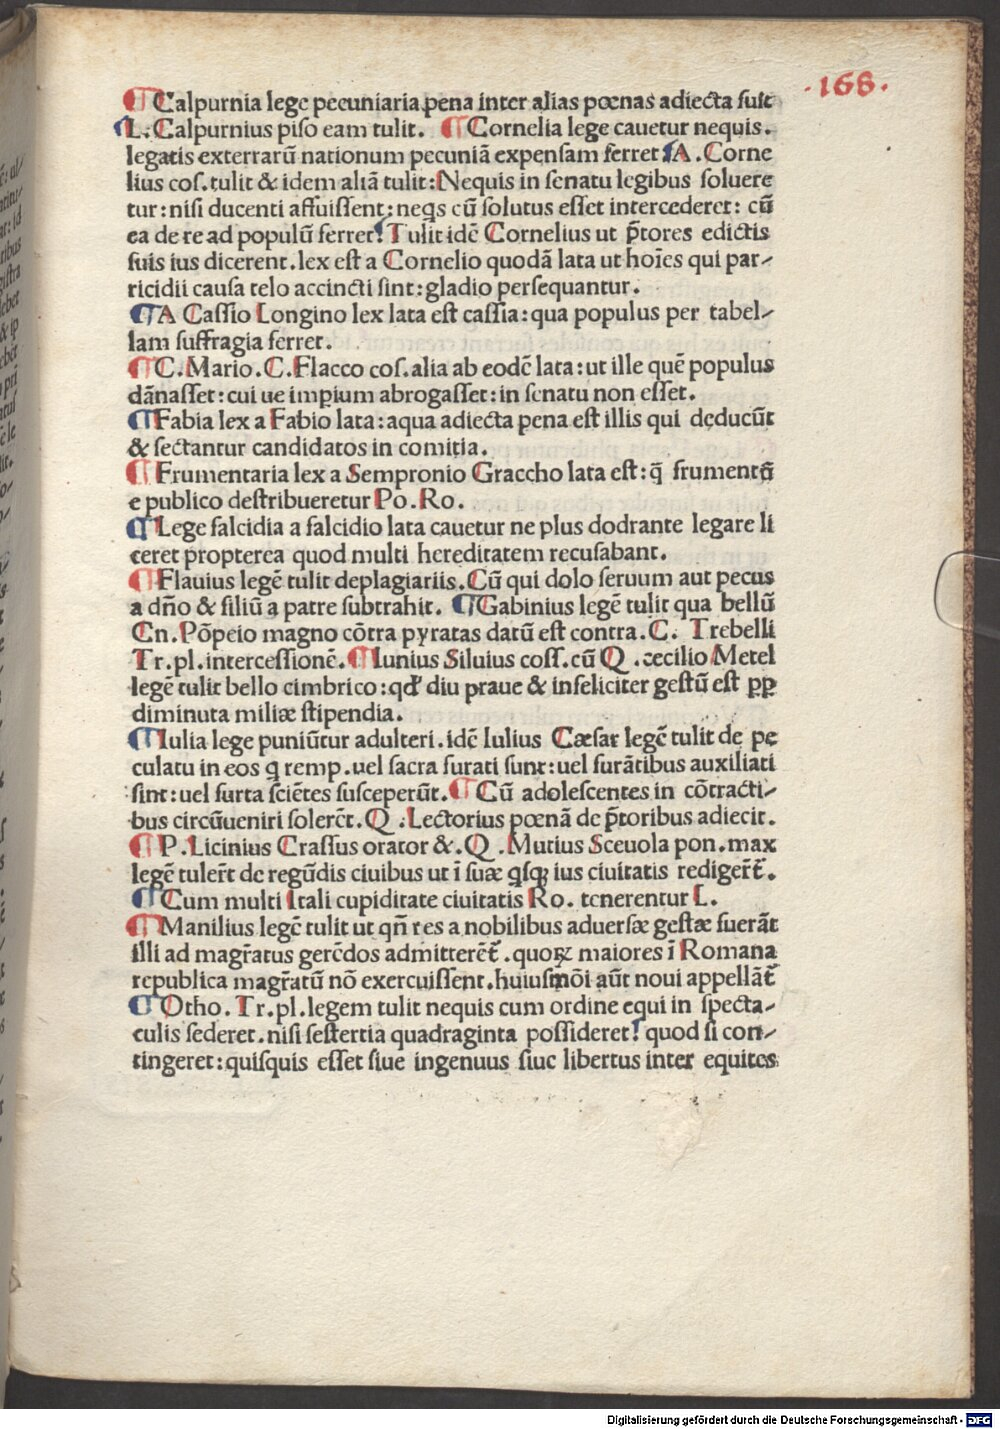 ·168·
¶ Calpurnia lege pecuniaria pena inter alias pœnas adiecta fuit
¶ L. Calpurnius piso eam tulit. ¶ Cornelia lege cauetur nequis.
legatis exterrarū nationum pecuniā expensam ferret ¶ A. Corne
lius cos. tulit & idem aliā tulit: Nequis in senatu legibus soluere
tur: nisi ducenti affuissent: neqs cū solutus esset intercederet: cū
ea de re ad populū ferret! Tulit idē Cornelius ut p̄tores edictis
suis ius dicerent. lex est a Cornelio quodā lata ut hoīes qui par-
ricidii causa telo accincti sint: gladio persequantur.
¶ A Cassio Longino lex lata est cassia: qua populus per tabel-
lam suffragia ferret.
¶ C. Mario. C. Flacco cos. alia ab eodē lata: ut ille quē populus
dānasset: cui ue impium abrogasset: in senatu non esset.
¶ Fabia lex a Fabio lata: aqua adiecta pena est illis qui deducūt
& sectantur candidatos in comitia.
¶ Frumentaria lex a Sempronio Graccho lata est: q̄ frumentū
e publico destribueretur Po. Ro.
¶ Lege falcidia a falcidio lata cauetur ne plus dodrante legare li
ceret propterea quod multi hereditatem recusabant.
¶ Flauius legē tulit deplagiariis. Cū qui dolo seruum aut pecus
a dn̄o & filiū a patre subtrahit. ¶ Gabinius legē tulit qua bellū
Cn. Pōpeio magno cōtra pyratas datū est contra. C. Trebelli
Tr. pl. intercessionē. ¶ Iunius Siluius coss. cū Q. cecilio Metel
legē tulit bello cimbrico: qđ diu praue & infeliciter gestū est ꝓp
diminuta miliæ stipendia.
¶ Iulia lege puniūtur adulteri. idē Iulius Cæsar legē tulit de pe
culatu in eos q remp. uel sacra furati sunt: uel furātibus auxiliati
sint: uel furta sciētes susceperūt. ¶ Cū adolescentes in cōtracti-
bus circūueniri solerēt. Q. Lectorius pœnā de p̄toribus adiecit.
¶ P. Licinius Crassus orator &. Q. Mutius Sceuola pon. max
legē tuler̄t de regūdis ciuibus ut ī suæ qsqꝫ ius ciuitatis rediger̄t.
¶ Cum multi Itali cupiditate ciuitatis Ro. tenerentur L.
¶ Manilius legē tulit ut qn̄ res a nobilibus aduersæ gestæ fuerāt
illi ad magr̄atus gerēdos admitterēt. quoꝝ maiores ī Romana
republica magr̄atū nō exercuissent. huiusmōi aūt noui appellāt
¶ Otho. Tr. pl. legem tulit nequis cum ordine equi in specta-
culis sederet. nisi sestertia quadraginta possideret! quod si con-
tingeret: quisquis esset siue ingenuus siue libertus inter equites
Digitalisierung gefördert durch die Deutsche Forschungsgemeinschaft - DFG